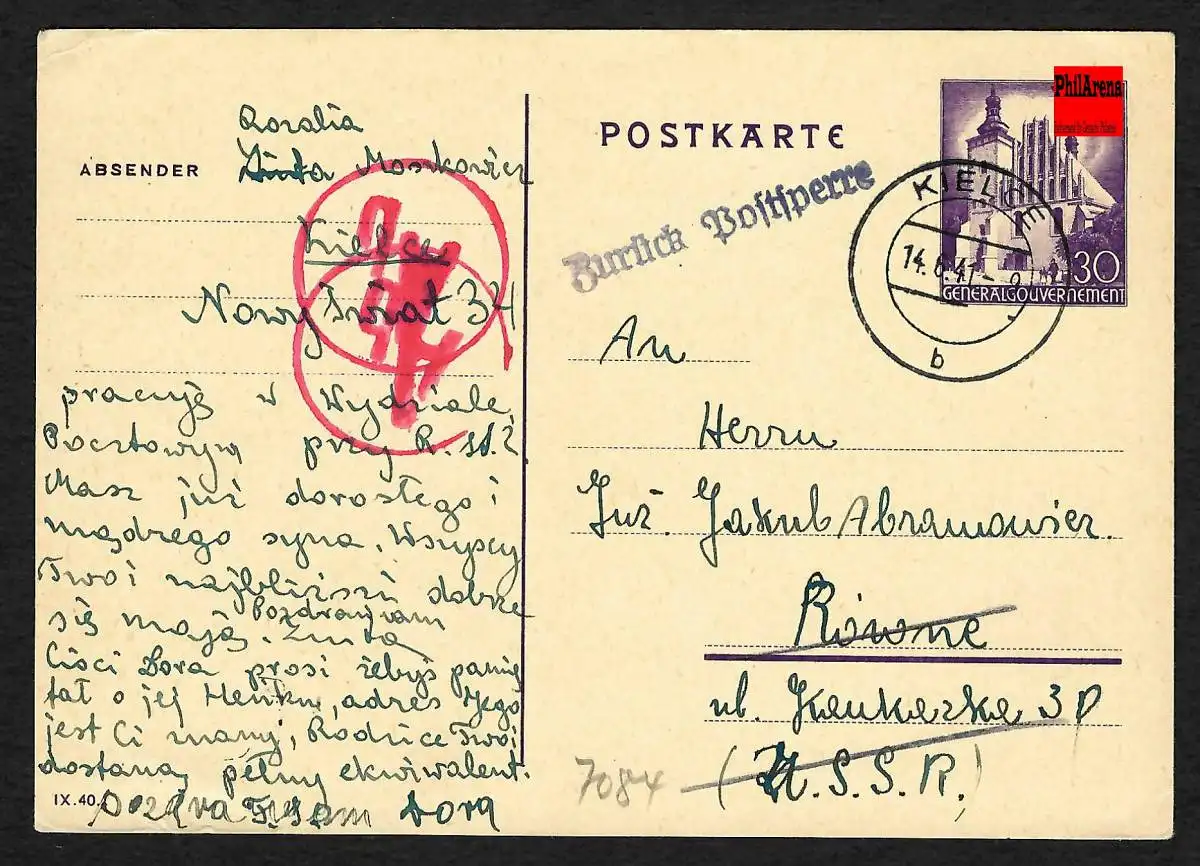 Rozalia
ABSENDER
Moskowicz
Kielce
Nowy Świat 34
pracuję w Wydziale
Pocztowym przy R. st. ż
Masz już dorosłego i
mądrego syna. Wszyscy
Twoi najbliżsi dobrze
się mają. Pozdrawiam
Zinta
Cioci Dora prosi żebyś pamię
tał o jej Heńku, adres jego
jest Ci znany, Rodzice Twoi
dostaną pełny ekwiwalent.
IX.40.
Dora
POSTKARTE
Zurück Postsperre
PhilArena
KIELCE
14.6.41
b
30
GENERALGOUVERNEMENT
An
Herrn
Inż. Jakub Abramowicz.
Równe
ul. 3
(U.S.S.R.)
7084